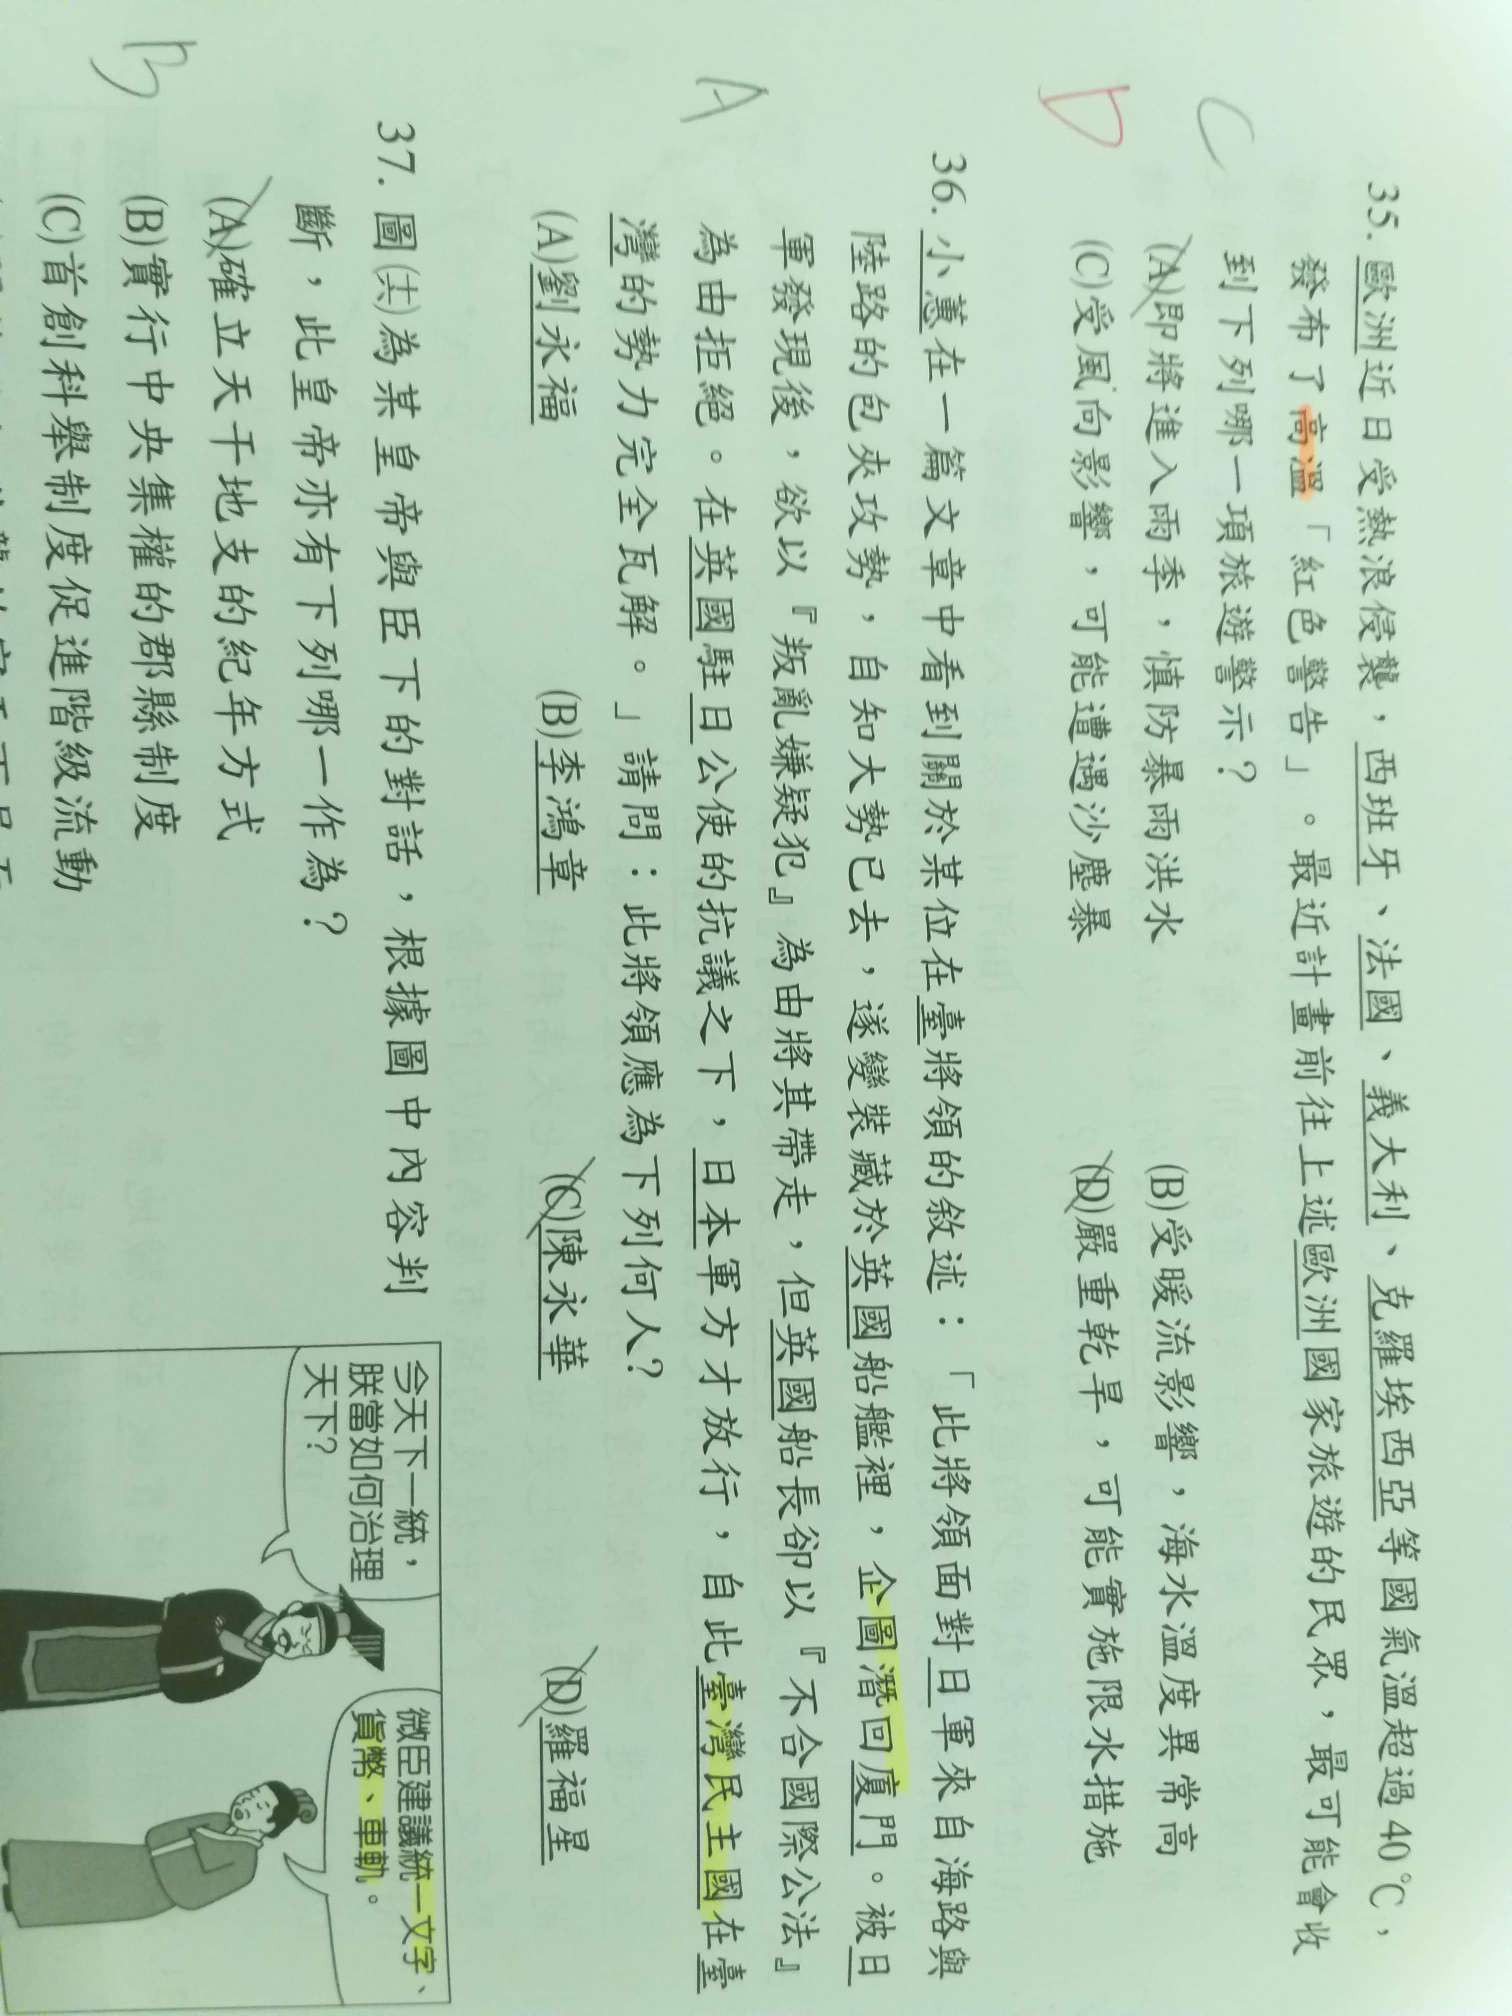 35. 歐洲近日受熱浪侵襲，西班牙、法國、義大利、克羅埃西亞等國氣溫超過40℃，
發布了高溫「紅色警告」。最近計畫前往上述歐洲國家旅遊的民眾，最可能會收
到下列哪一項旅遊警示？
C
(A)即將進入雨季，慎防暴雨洪水 (B)受暖流影響，海水溫度異常高
D
(C)受風向影響，可能遭遇沙塵暴 (D)嚴重乾旱，可能實施限水措施
36. 小蕙在一篇文章中看到關於某位在臺將領的敘述：「此將領面對日軍來自海路與
陸路的包夾攻勢，自知大勢已去，遂變裝藏於英國船艦裡，企圖潛回廈門。被日
軍發現後，欲以『叛亂嫌疑犯』為由將其帶走，但英國船長卻以『不合國際公法』
A
為由拒絕。在英國駐日公使的抗議之下，日本軍方才放行，自此臺灣民主國在臺
灣的勢力完全瓦解。」請問：此將領應為下列何人？
(A)劉永福 (B)李鴻章 (C)陳永華 (D)羅福星
37. 圖(十六)為某皇帝與臣下的對話，根據圖中內容判
斷，此皇帝亦有下列哪一作為？
(A)確立天干地支的紀年方式
B
(B)實行中央集權的郡縣制度
(C)首創科舉制度促進階級流動
今天下一統，
朕當如何治理
天下？
微臣建議統一文字、
貨幣、車軌。